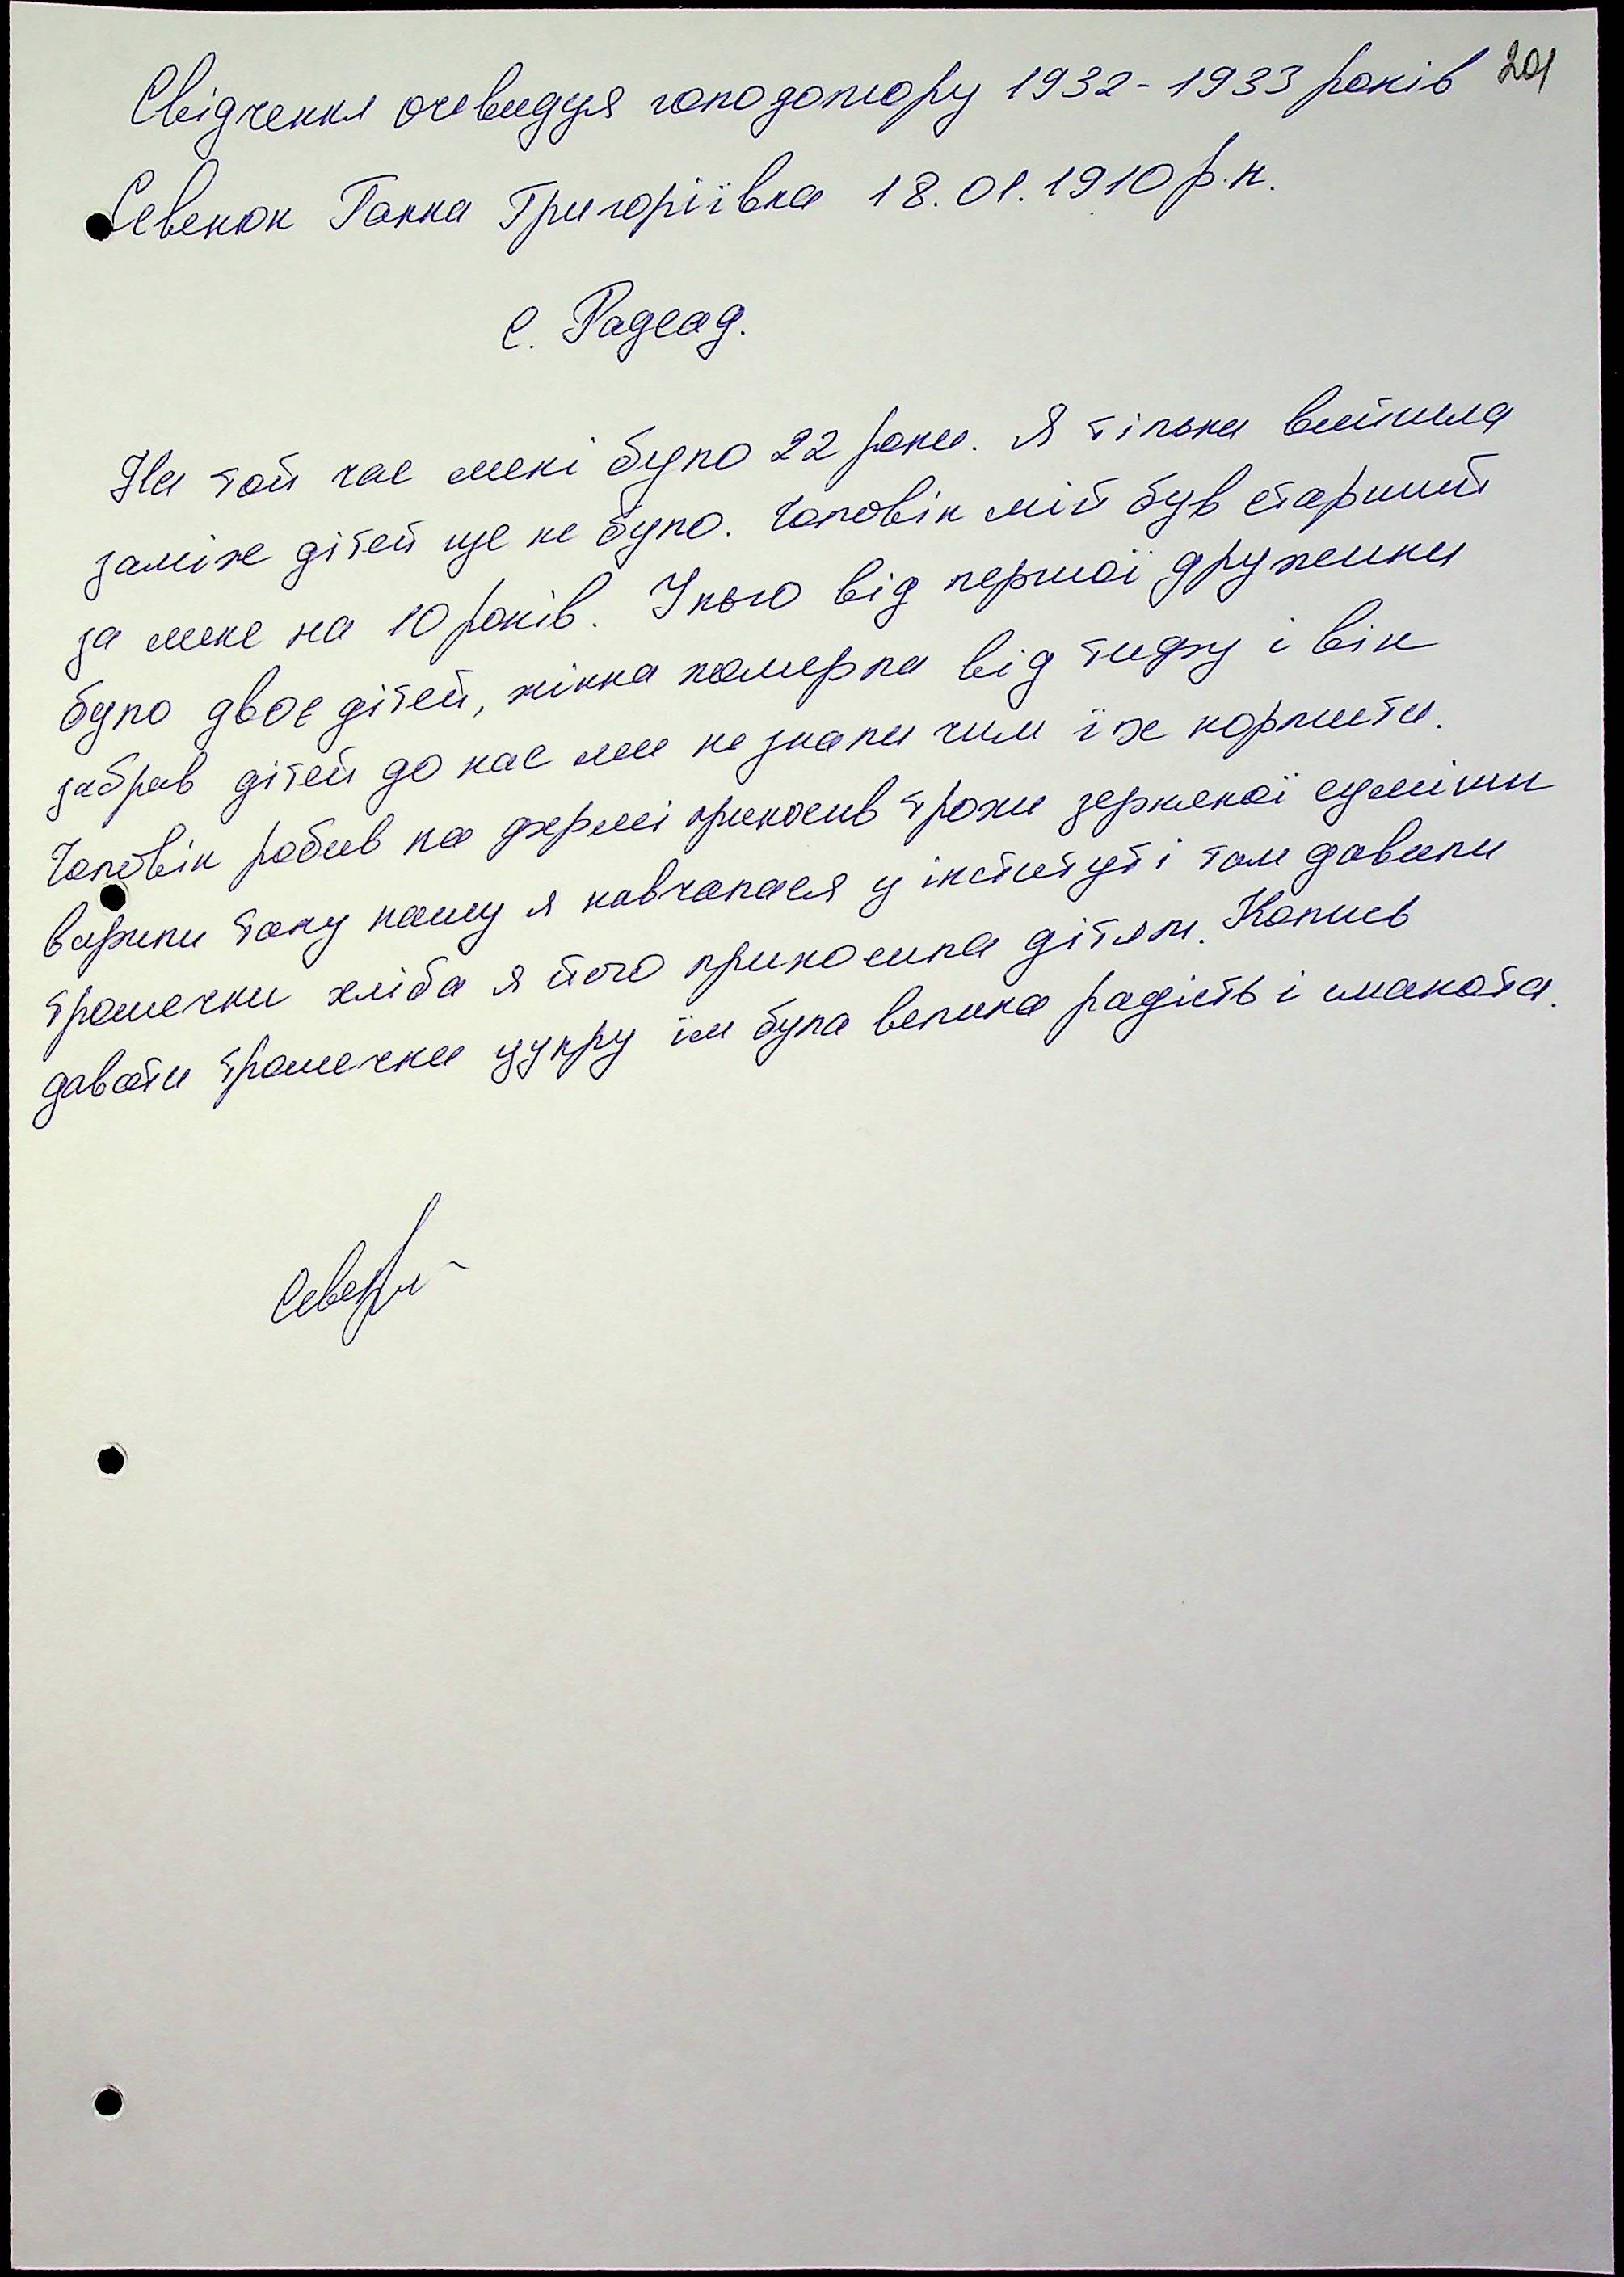 201
Свідчення очевидця голодомору 1932-1933 років
Севенюк Ганна Григоріївна 18.01.1910 р.н.
с. Радсад.
На той час мені було 22 роки. Я тільки вийшла
заміж дітей ще не було. Чоловік мій був старший
за мене на 10 років. У нього від першої дружини
було двоє дітей, жінка померла від тифу і він
забрав дітей до нас ми не знали чим їх кормити.
Чоловік робив на фермі приносив трохи зерняної суміши
варили таку кашу я навчалася у інституті там давали
тромечки хліба я його приносила дітям. Колись
давати тромечки цукру їм була велика радість і смакота.